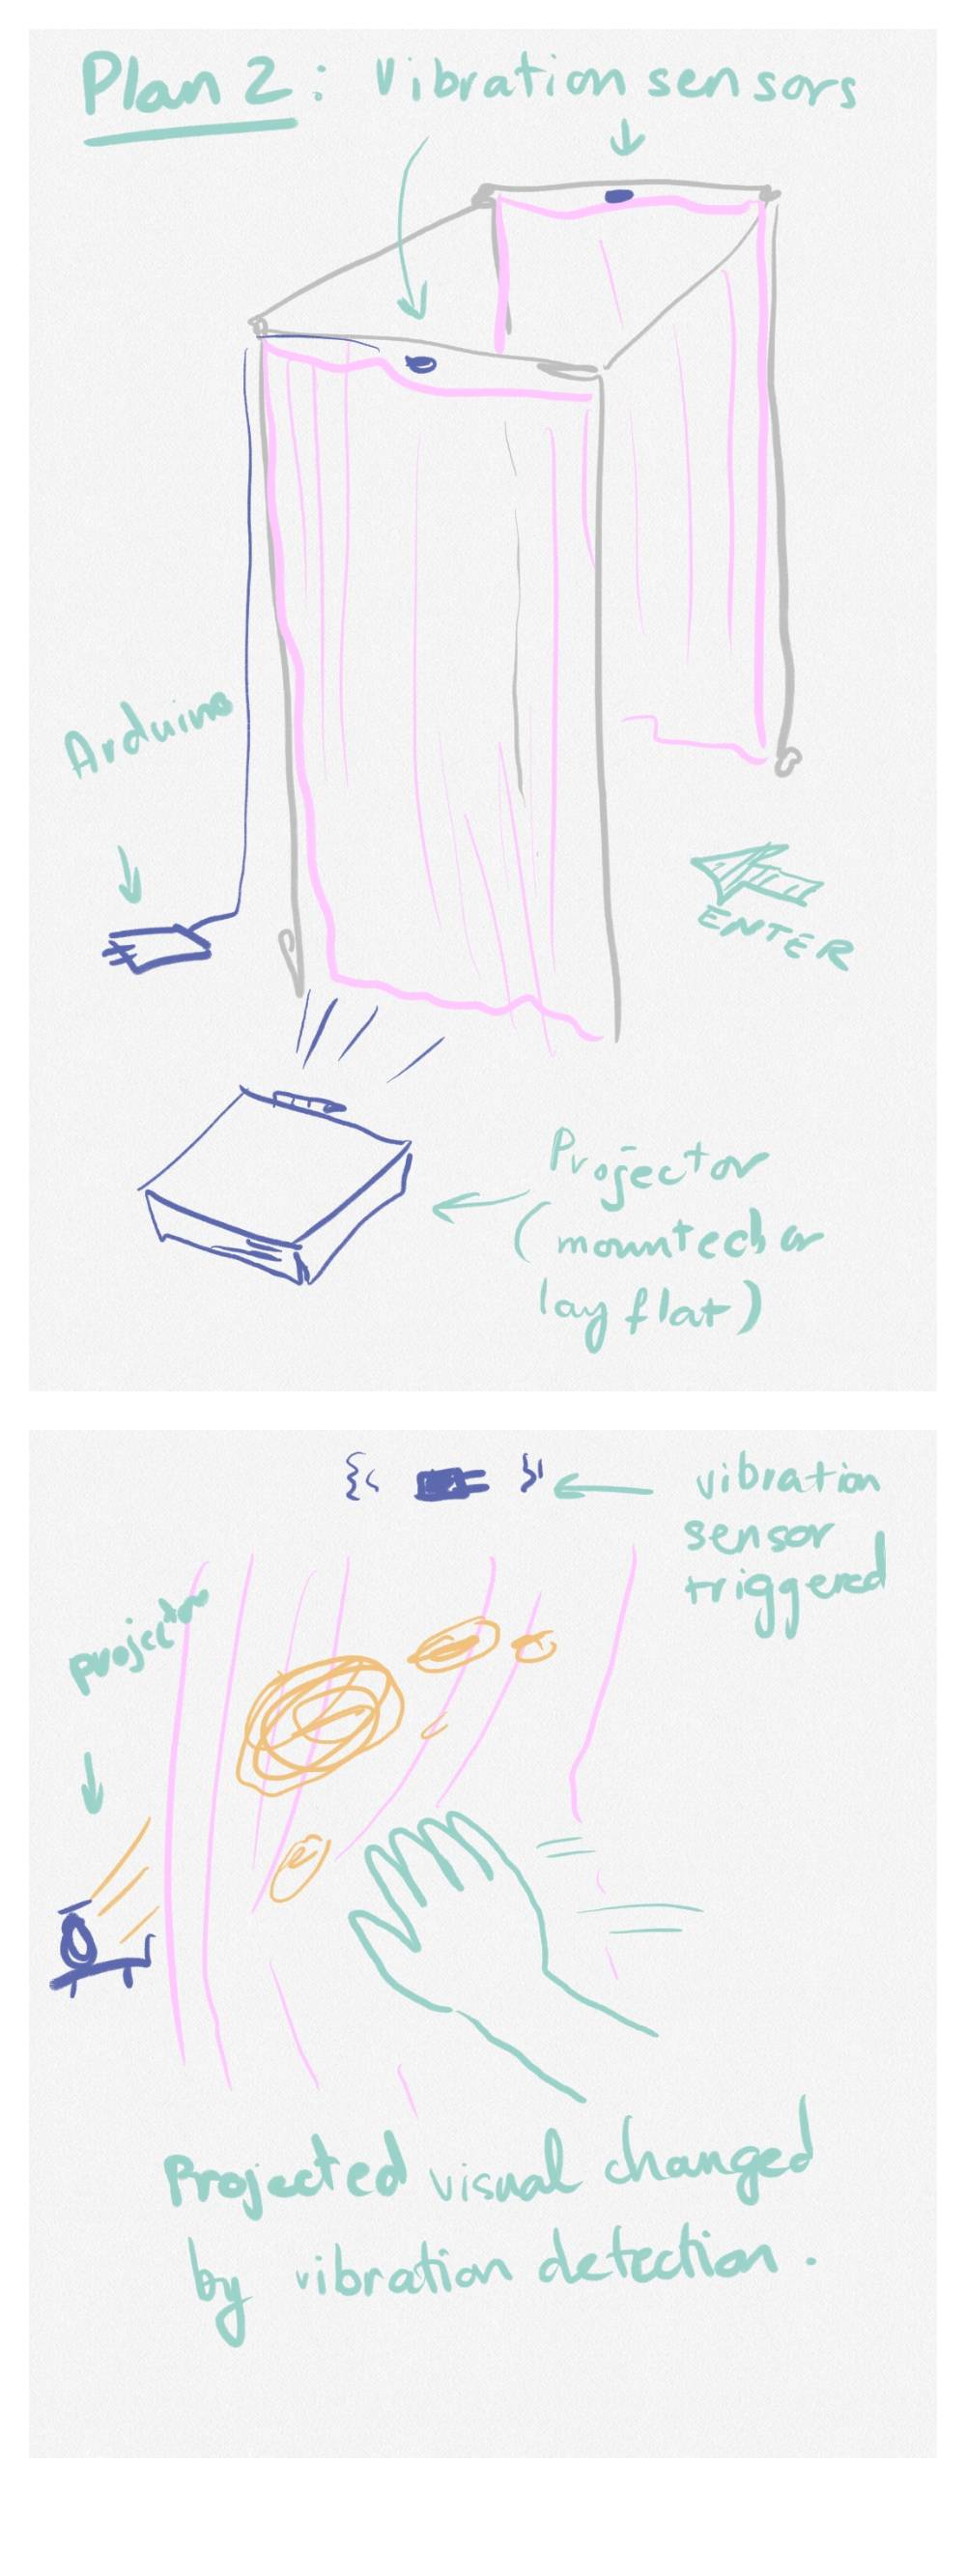 Plan 2: Vibration sensors
Arduino
ENTER
Projector
(mounted or
lay flat)
vibration
sensor
triggered
projector
Projected visual changed
by vibration detection.